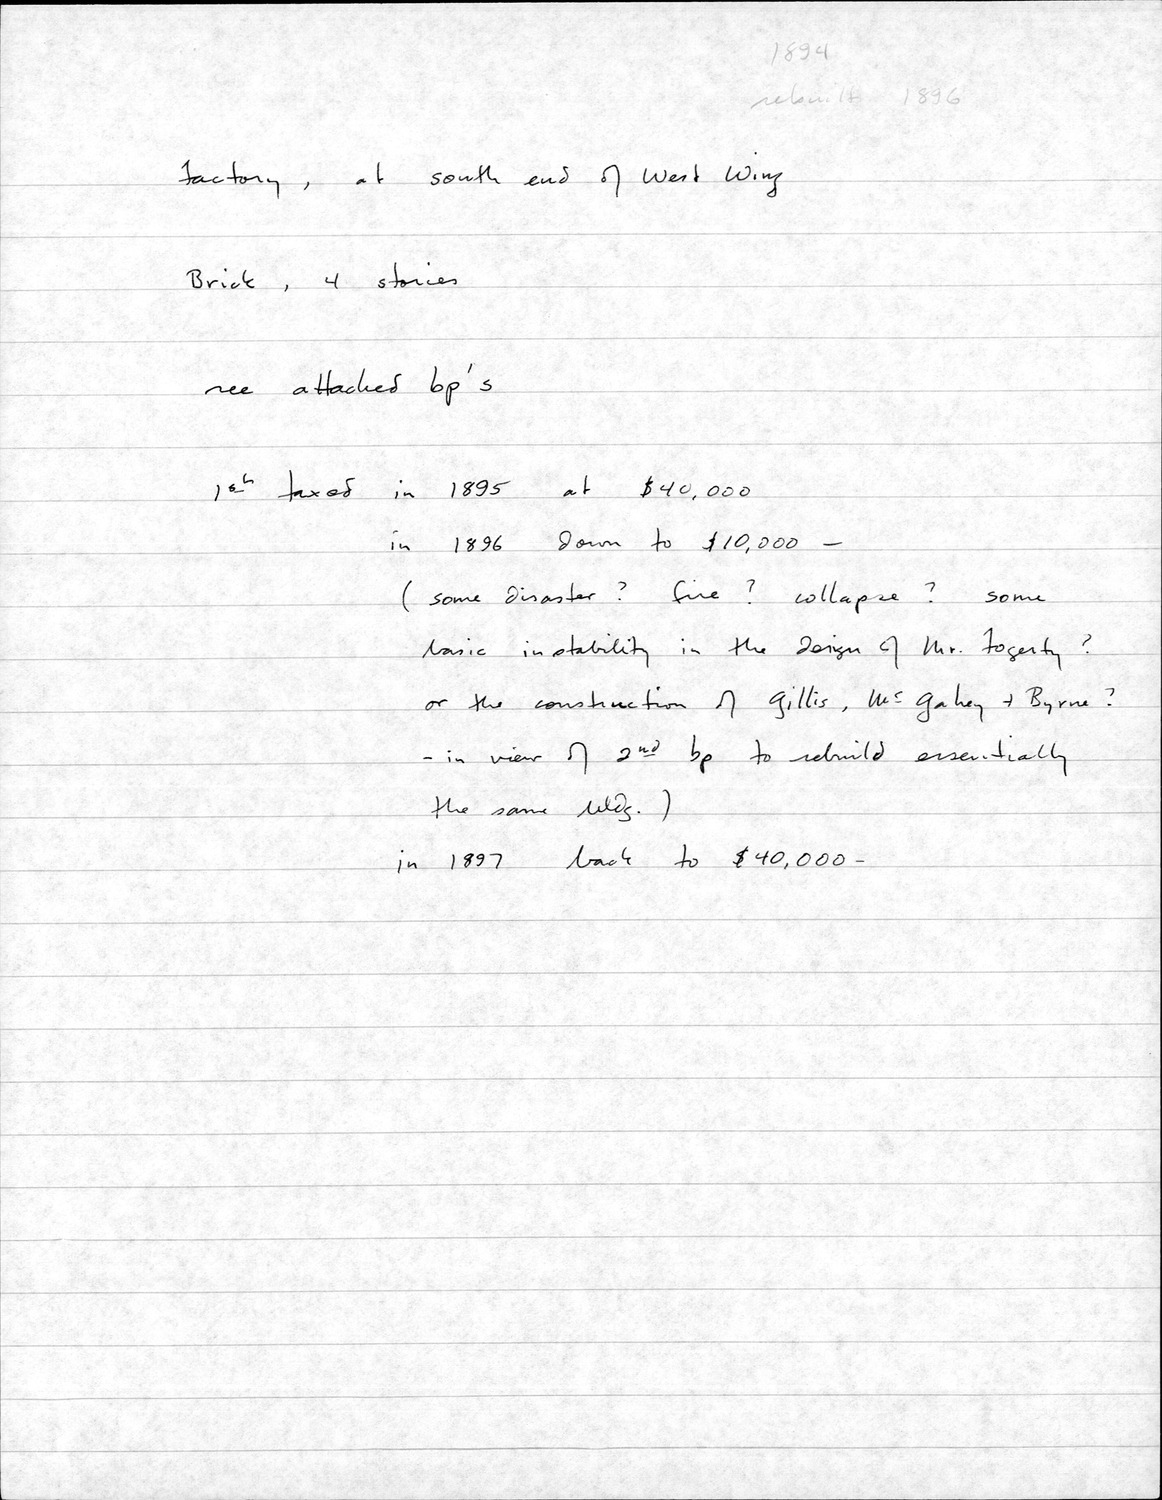 1894
rebuilt 1896
Factory, at south end of West Wing
Brick, 4 stories
see attached bp's
1st taxed in 1895 at $40,000
in 1896 down to $10,000 —
(some disaster? fire? collapse? some
basic instability in the design of Mr. Fogerty?
or the construction of Gillis, Mc Gahey + Byrne?
- in view of 2nd bp to rebuild essentially
the same bldg.)
in 1897 back to $40,000 -